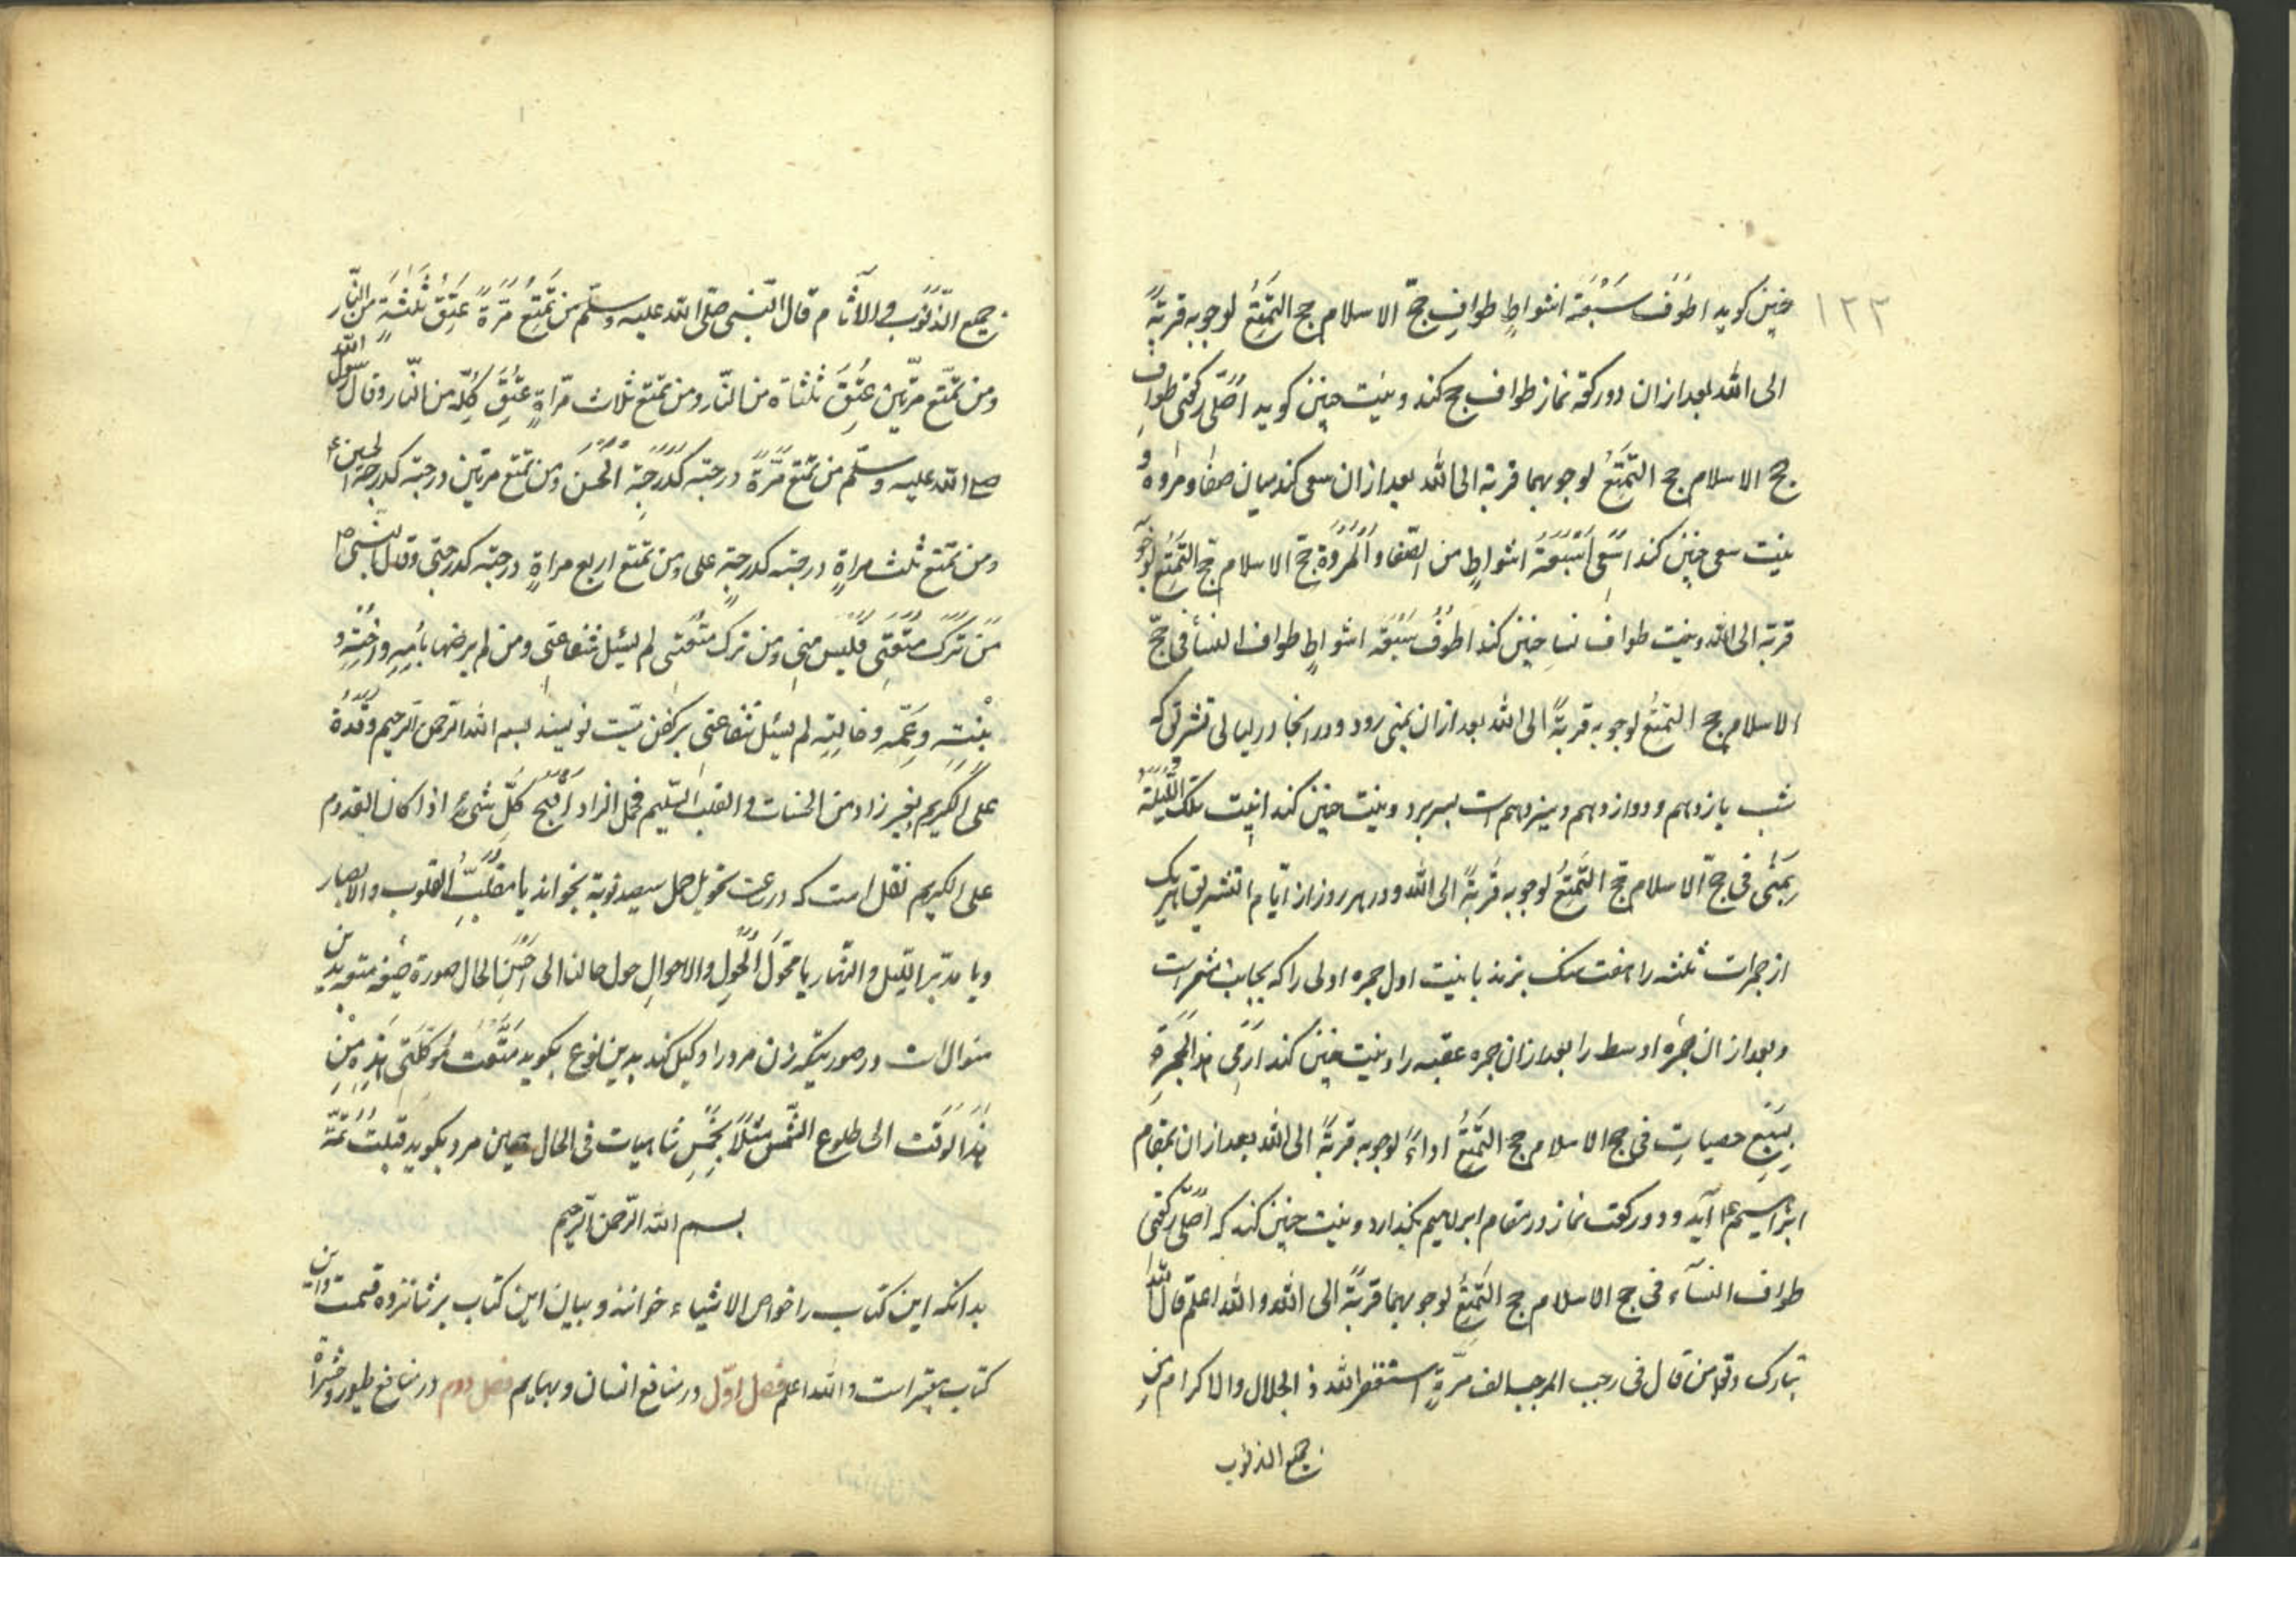 ١٢٣
چنین کوید اطوف سَبْعَة اشواطٍ طوافِ حجّ الاسلام حج التَمَتُّعُ لوجوبه قربةً
الی الله بعد ازان دو رکعة نماز طواف حج کند و نیت چنین کوید اُصَلّی رکعتی طواف
حج الاسلام حج التمَتُّعُ لوجوبهما قربة الی الله بعد ازان سعی کند میان صفا و مروه و
نیت سعی چنین کند اَسْعی سَبْعَةَ اشواطٍ من الصّفا و المَرْوَة حج الاسلام حج التمَتُّع لوجو
قربة الی الله و نیت طواف نسا چنین کند اَطُوفُ سَبْعَة اشواطٍ طواف النسأ فی حجّ
الاسلام حج التمتعُ لوجوبه قربةً الی الله بعد ازان بمنی رود و در انجا در لیالی تشریق که
شب یازدهم و دوازدهم و سیزدهم است بسر برد و نیت چنین کند ابیت تلک اللَّیْلَة
بِمَنٰی فی حجّ الاسلام حج التَمَتُّعُ لوجوبه قُربةً الی الله و در هر روز از ایّام التشریق هر یک
از جمرات ثلثه را هفت سنک بزند با نیت اول جمره اولی را که بجانب مشعر است
و بعد از ان جمرهٔ اوسط را بعد ازان جمره عقبه را و نیت چنین کند اَرمی هذ الجَمرة
بِسَبْعِ حصیاتٍ فی حج الاسلام حج التَمَتُّعُ اداءً لوجوبه قربةً الی الله بعد ازان بمقام
ابراهیم ع آید و دو رکعت نماز در مقام ابراهیم بکذارد و نیت چنین کند که اُصَلّی رکعتی
طواف النسآء فی حج الاسلام حج التَمَتُّعُ لوجوبهما قربةً الی الله و الله اعلم قال الله
تبارک و تعا من قال فی رجب المرجب الف مَرّةٍ استغفر الله ذ الجلال و الاکرام من
جمیع الذنوب
جمیع الذّنوُب و الآثام قال النّبی صلّی الله علیه و سلّم من تَمَتَّعُ مَرَّةً عَتِقَ ثُلُثهٍ من النّار
و من تمتّع مرّتین عتِقَ ثلثاه من النّار و من تمتع ثلاث مرّاةٍ عتقَ کُلّه من النّار و قال رسول الله
صلی الله علیه و سلّم من تمتع مَرَّةً درجته کَدَرَجَةِ الحُسَین و من تمتع مرتین درجته کدرجة الحسن ع
و من تمتع ثلث مراةٍ درجته کدرجةِ علی و من تمتع اربع مراةٍ درجته کدرجتی و قال النبی ص
مَنْ تَرَکَ مُتْعَتَی فَلَیس مِنی و من ترک مُتعَتی لم ینل شفاعتی و من لم یرضها بامّه و اختِهِ و
بِنتِهِ و عَمّهِ و خالتِهِ لم ینل شفاعتی بر کفن میّت نویسند بسم الله الرّحمن الرّحیم وَفَدْتُ
علی الکریم بغیر زاد من الحسنات و القلب السّلیم فحمل الزاد اقبح کُلّ شیء اذا کان القدوم
علی الکریم نقل است که در ساعت تحویل حمل سیصد نوبة بخواند یا مقلّبَ القلوب و الابصار
و یا مدبّر اللّیل و النّهار یا محوّل الحَول و الاحوالِ حول حالنا الی احسَنِ الحال صورة صیغه متعه بدین
منوال است در صورتیکه زن مرد را وکیل کند بدین نوع بکوید مَتَّعْتُ مُوَکّلَتی هذِهِ مِنْ
هذَا الوَقْت الی طلوع الشّمس مثلاً بخمسِ شاهیات فی الحال همین مرد بکوید قبلتُ تمّة
بسم الله الرّحمن الرّحیم
بدانکه این کتاب را خواص الاشیاء خوانند و بیان این کتاب بر شانزده قسمت و این
کتاب معتبر است و الله اعلم فصل اوّل در منافع انسان و بهایم فصل دوم در منافع طیور و حشرات